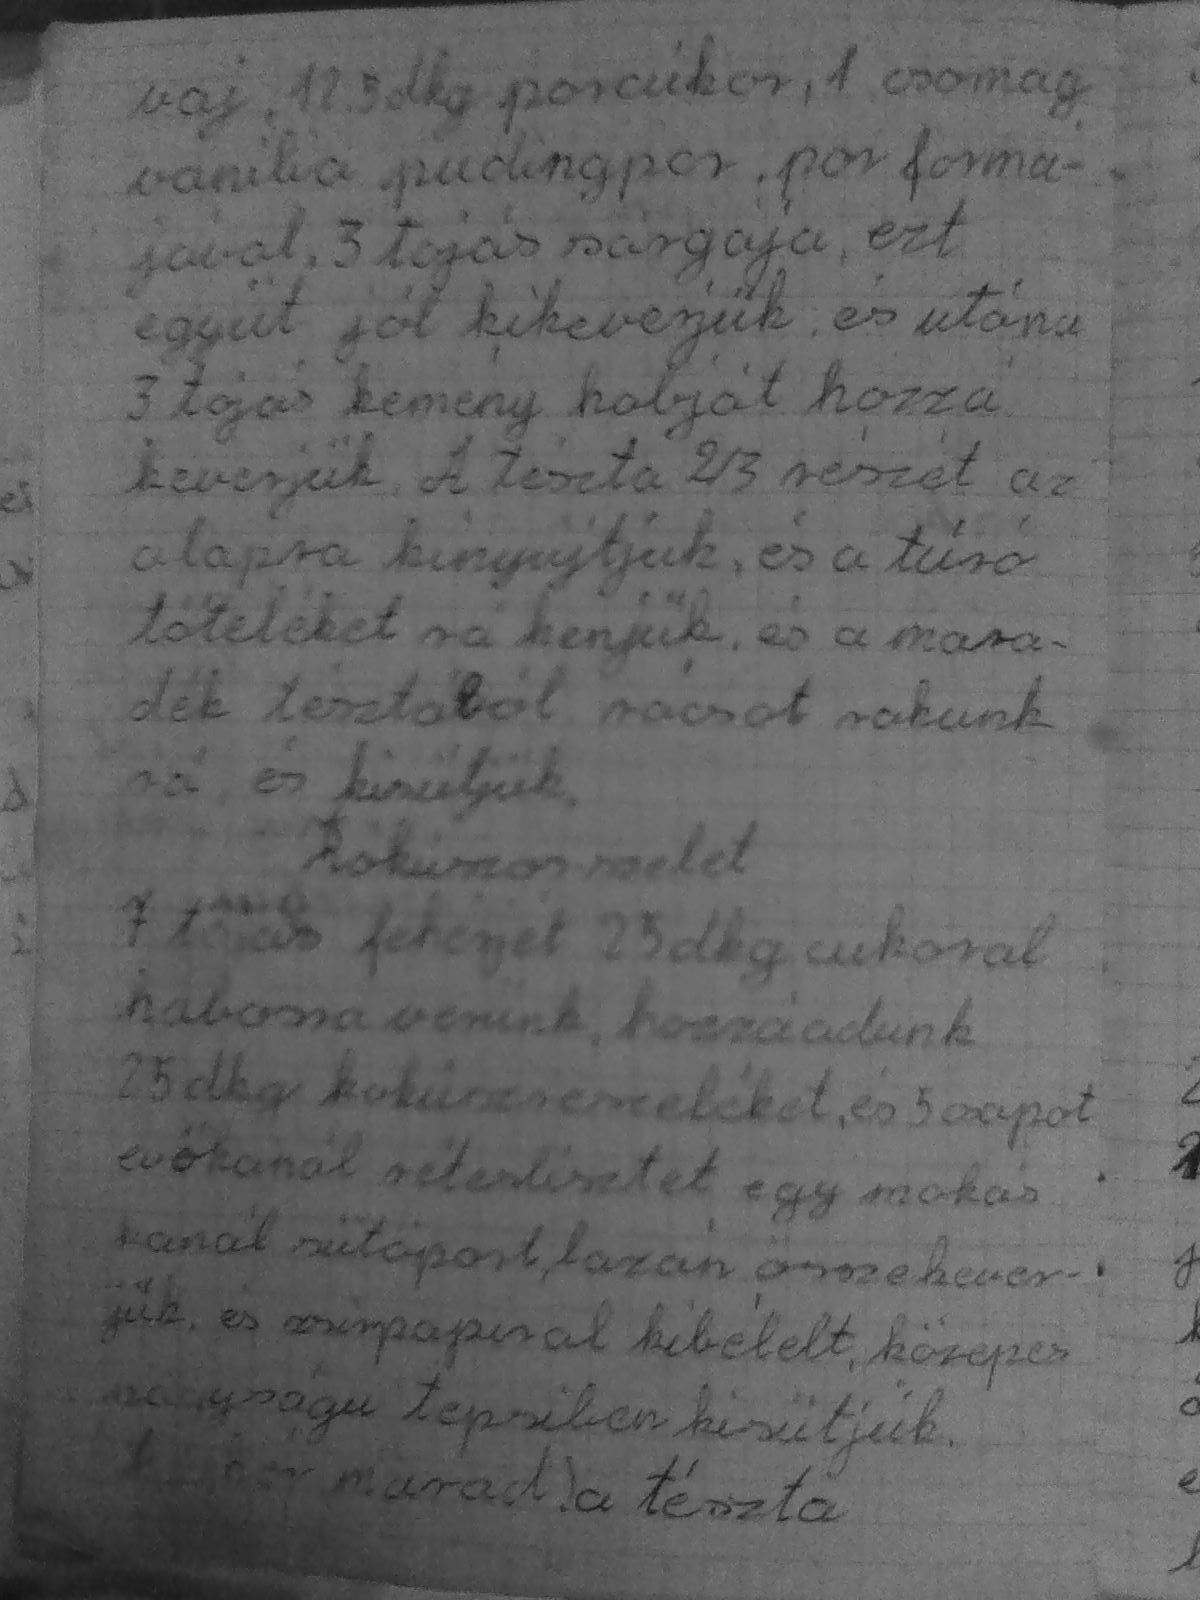 vaj, 12.5 dkg porcukor, 1 csomag
vanilia pudingpor, por formá-
jával, 3 tojás sárgája, ezt
együt jól kikeverjük, és utána
3 tojás kemény habját hozzá
keverjük. A tészta 2/3 részét az
alapra kinyujtjuk, és a túró
tőteléket rá kenjük, és a mara-
dék tésztából rácsot rakunk
rá, és kisütjük.
Kokúszos szelet
7 tojás fehérjét 25 dkg cukoral
habossa verünk, hozzáadunk
25 dkg kokúszreszeléket, és 5 csapot
evőkanál rétestisztet egy mokás
kanál sütőport, lazán összekever-
jük, és zsirpapiral kibélelt, közepes
nagyságu tepsiben kisütjük.
marad a tészta